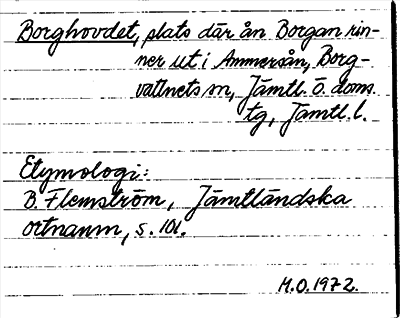 Borghovdet, plats där ån Borgan rin-
ner ut i Ammerån, Borg-
vattnets sn, Jämtl. ö. doms.
tg, Jämtl. l.
Etymologi:
B. Flemström, Jämtländska
ortnamn, s. 101.
M.O. 1972.